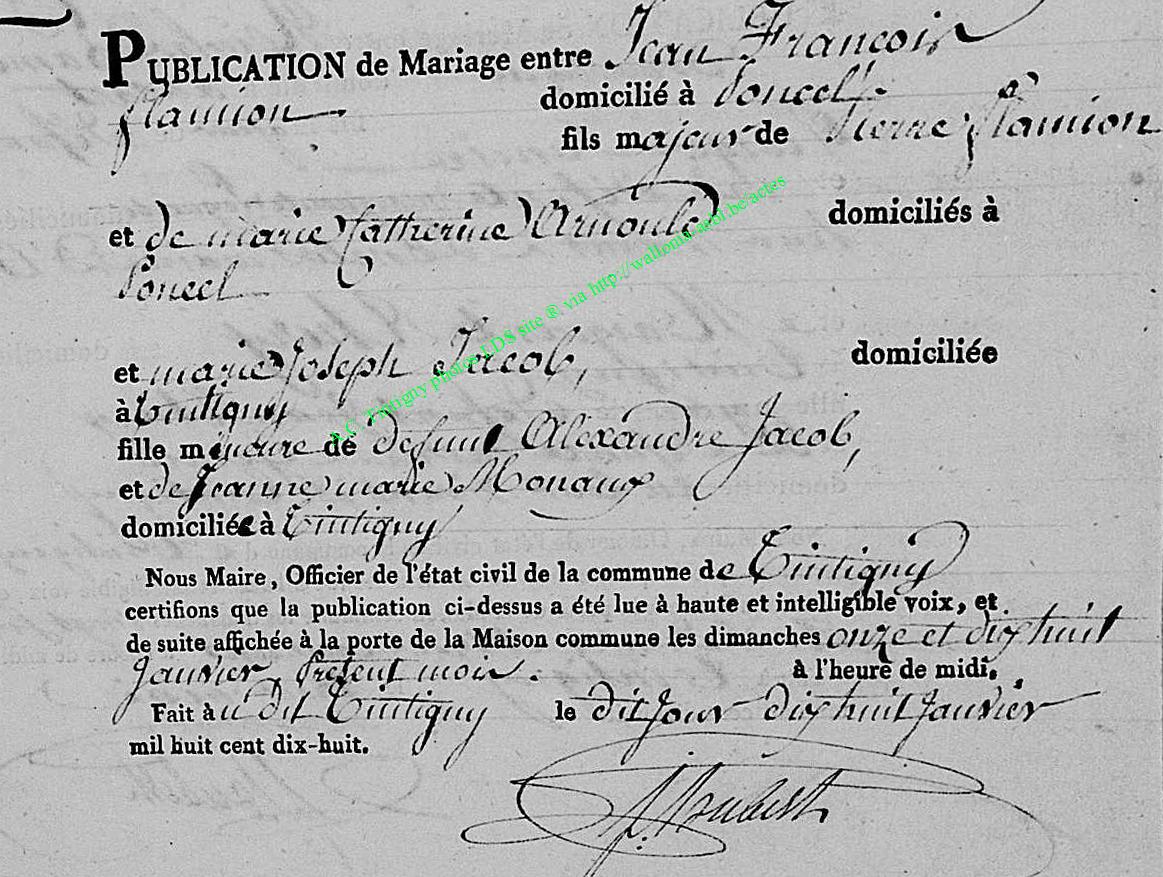 PUBLICATION de Mariage entre Jean François
flamion domicilié à Poncel
fils majeur de Pierre flamion
et de marie Catherine Arnould domiciliés à
Poncel
et marie Joseph Jacob, domiciliée
à Tintigny
fille mineure de defunt Alexandre Jacob,
et de Jeanne marie Monaux
domiciliée à Tintigny
Nous Maire, Officier de l'état civil de la commune de Tintigny
certifions que la publication ci-dessus a été lue à haute et intelligible voix, et
de suite affichée à la porte de la Maison commune les dimanches onze et dix huit
Janvier present mois. à l'heure de midi.
Fait au dit Tintigny le dit Jour dix huit Janvier
mil huit cent dix-huit.
A.C. Tintigny photos LDS site ® via http://wallonia-asbl.be/actes